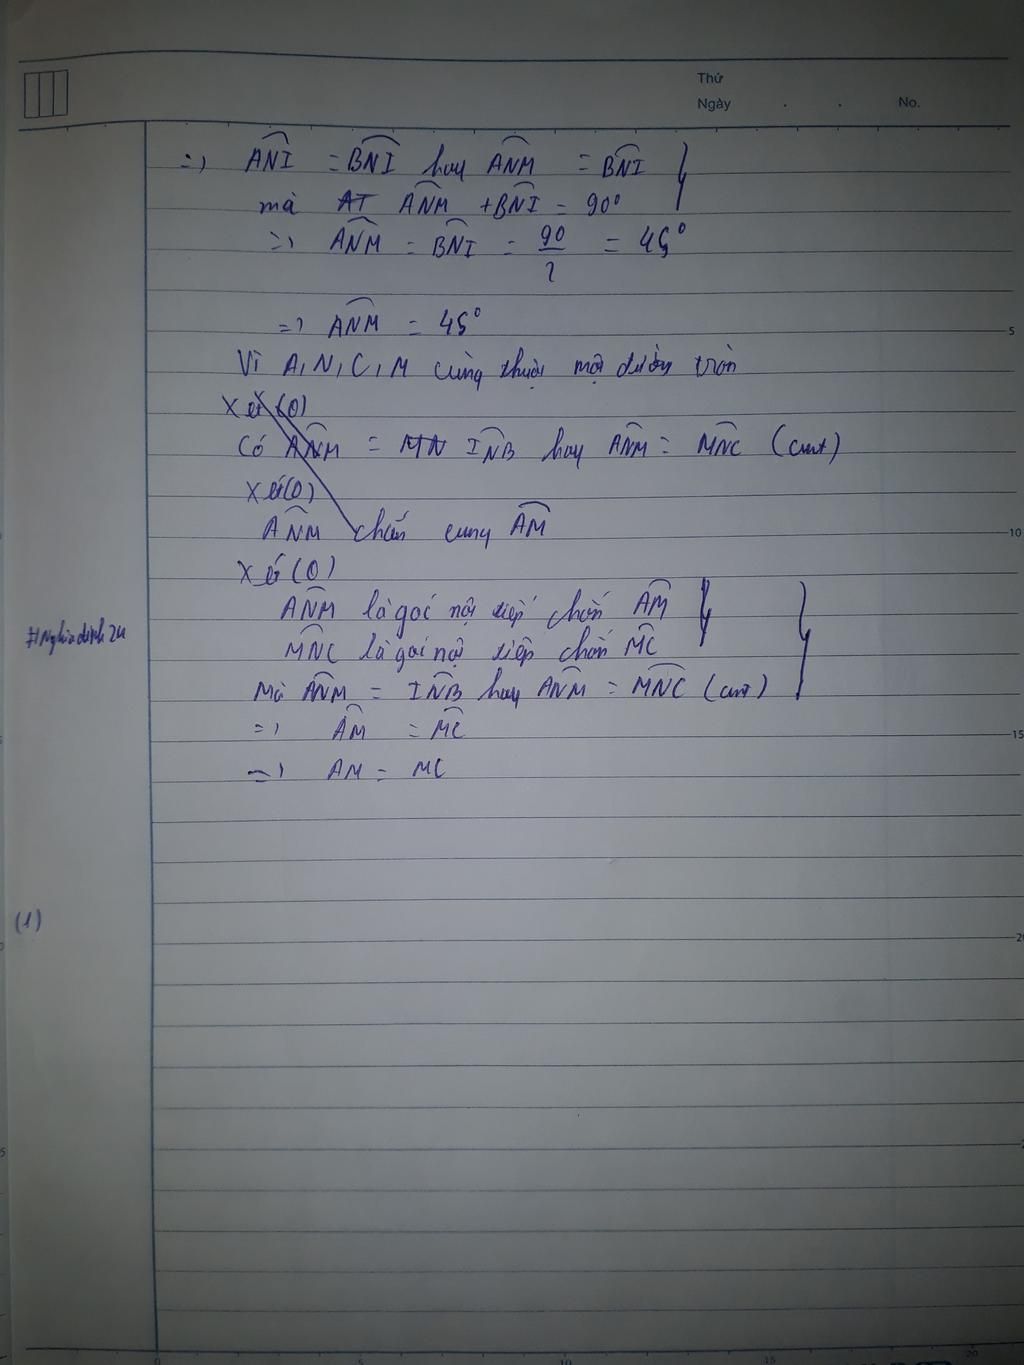 Thứ
Ngày . . No.
=> ANI = BNI hay ANM = BNI
mà AT ANM + BNI = 90°
=> ANM = BNI = 90/2 = 45°
=> ANM = 45°
5
Vì A, N, C, M cùng thuộc một đường tròn
Xét (O)
Có ANM = MN INB hay ANM = MNC (cmt)
Xét (O)
ANM chắn cung AM
10
Xét (O)
ANM là góc nội tiếp chắn AM
#Nghiadinh24
MNC là góc nội tiếp chắn MC
Mà ANM = INB hay ANM = MNC (cmt)
=> AM = MC
15
=> AM = MC
(1)
20
0 5 10 15 20